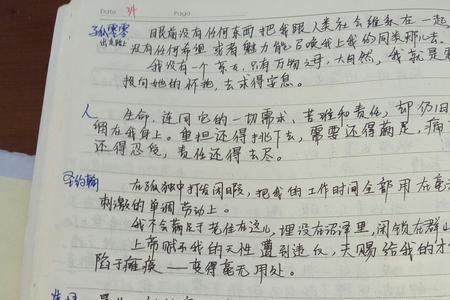 Date 34 Page.
孤零零 眼前没有任何东西把我跟人类社会维系在一起,
出走路上 没有任何希望或者魅力能召唤我上我的同类那儿去。
我没有一个亲友,只有万物之母,大自然,我就是要
投向她的怀抱,去求得安息。
人 生命,连同它的一切需求、苦难和责任,却仍旧
在我身上。重担还得挑下去,需要还得满足,痛
还得忍受,责任还得去尽。
圣约翰 在孤独中打发闲暇,把我的工作时间全部用在毫无
刺激的单调劳动上。
我不会满足于老住在这儿,埋没在沼泽里,闲锁在群山
上帝赋予我的天性遭到违反,天赐给我的才
陷于瘫痪——变得毫无用处。